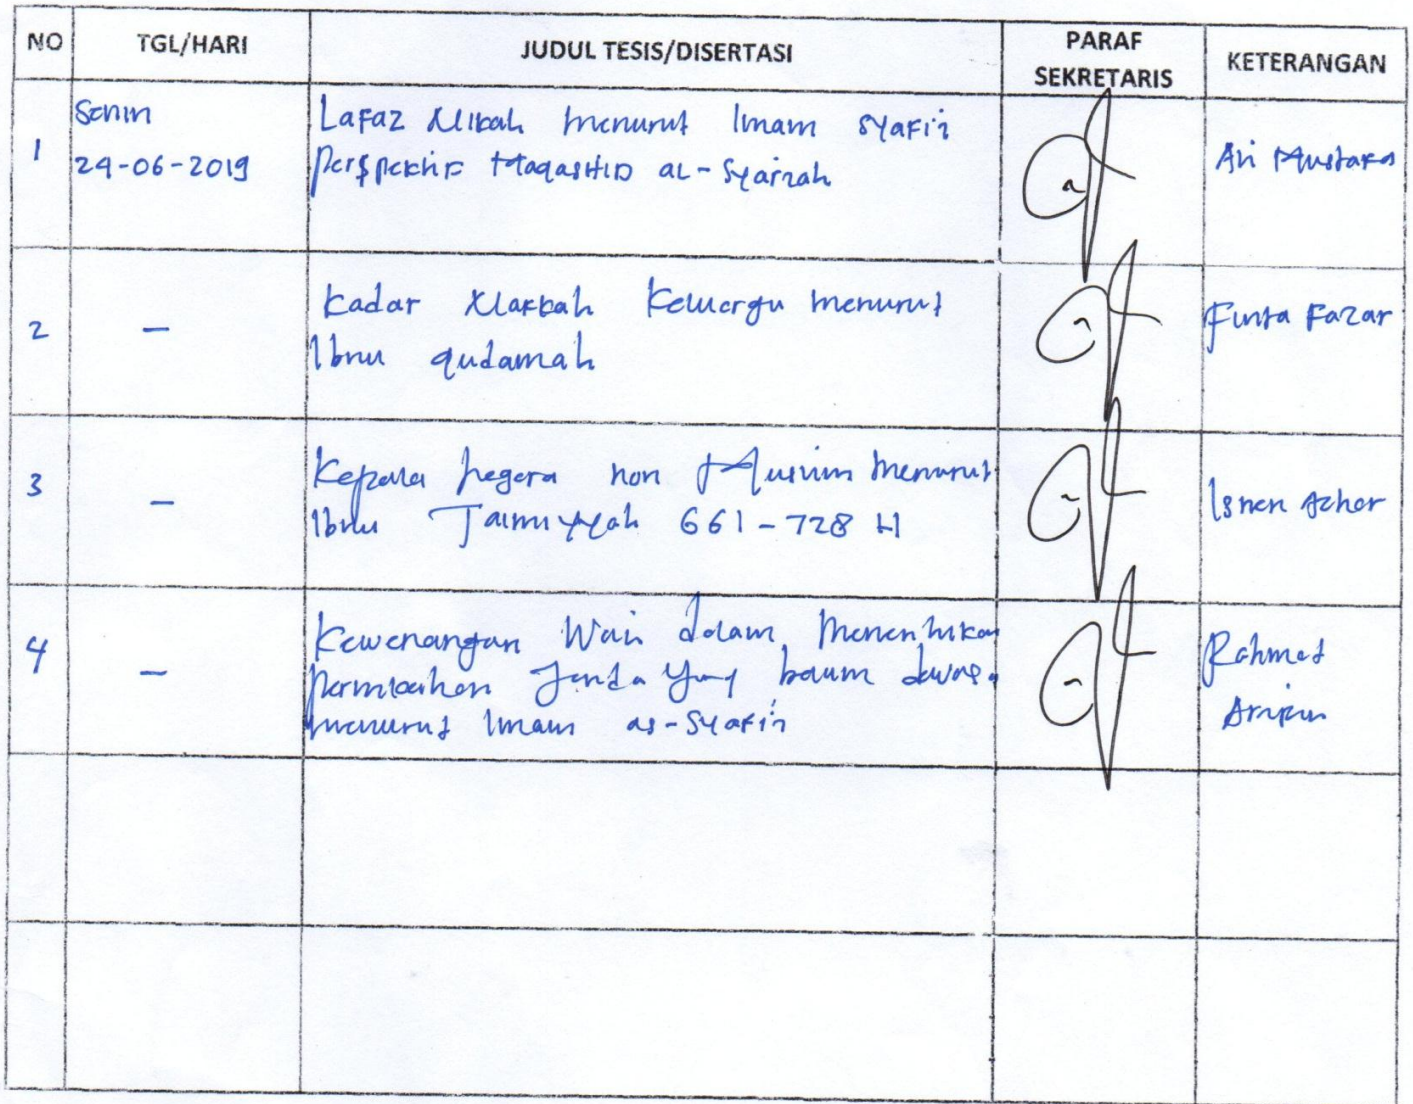 NO TGL/HARI JUDUL TESIS/DISERTASI PARAF SEKRETARIS KETERANGAN
1 Senin
24-06-2019
Lafaz Nikah menurut Imam Syafi'i
perspektif Maqashid al-Syari'ah
Ari Mustafa
2 —
Kadar Nafkah Keluarga menurut
Ibnu qudamah
Fazar
3 —
Kepala negara non Muslim menurut
Ibnu Taimiyyah 661-728 H
Isnen Azhar
4 —
Kewenangan Wali dalam menentukan
pernikahan Janda yang belum dewasa
menurut Imam as-Syafi'i
Rahmad
Aripin